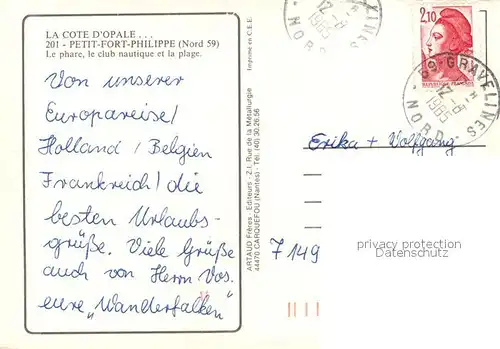 LA COTE D'OPALE . . .
201 - PETIT-FORT-PHILIPPE (Nord 59)
Le phare, le club nautique et la plage.
Von unserer
Europareise/
Holland / Belgien
Frankreich/ die
besten Urlaubs-
grüße. Viele Grüße
auch von Herrn Vos.
eure „Wanderfalken"
Imprimé en C.E.E.
ARTAUD Frères, Editeurs - Z.I. Rue de la Métallurgie
44470 CARQUEFOU (Nantes) - Tél. (40) 30.26.56
2,10
RÉPUBLIQUE FRANÇAISE
59 GRAVELINES
12 -8
1985
NORD
Erika + Wolfgang
7149
privacy protection
Datenschutz